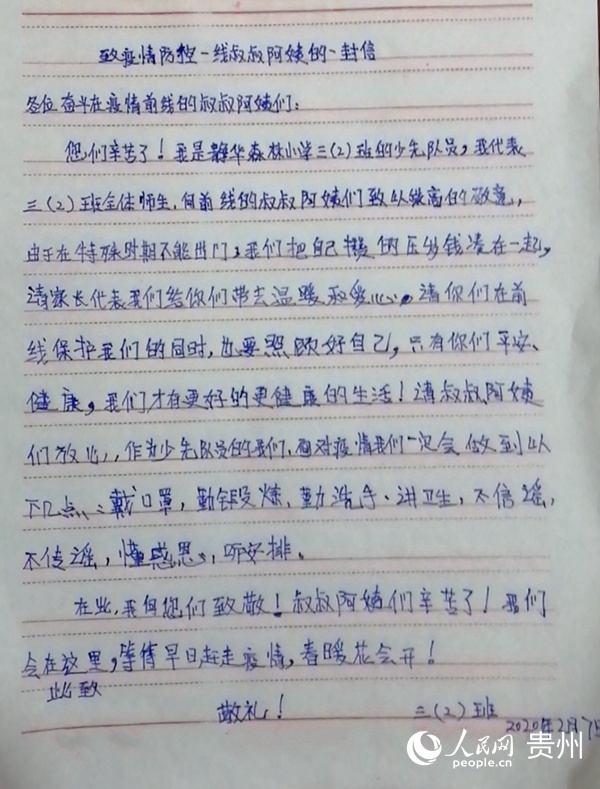 致疫情防控一线叔叔阿姨的一封信
各位奋斗在疫情前线的叔叔阿姨们:
您们辛苦了!我是静华森林小学三(2)班的少先队员,我代表
三(2)班全体师生,向前线的叔叔阿姨们致以崇高的敬意,
由于在特殊时期不能出门,我们把自己攒的压岁钱凑在一起,
请家长代表我们给你们带去温暖和爱心。请你们在前
线保护我们的同时,也要照顾好自己,只有你们平安、
健康,我们才有更好的更健康的生活!请叔叔阿姨
们放心,作为少先队员的我们,面对疫情我们一定会做到以
下几点:戴口罩,勤锻炼、勤洗手、讲卫生,不信谣,
不传谣,懂感恩,听安排。
在此,我向您们致敬!叔叔阿姨们辛苦了!我们
会在这里,等待早日赶走疫情,春暖花会开!
此致
敬礼!
三(2)班
2020年2月7日
人民网 贵州
people.cn